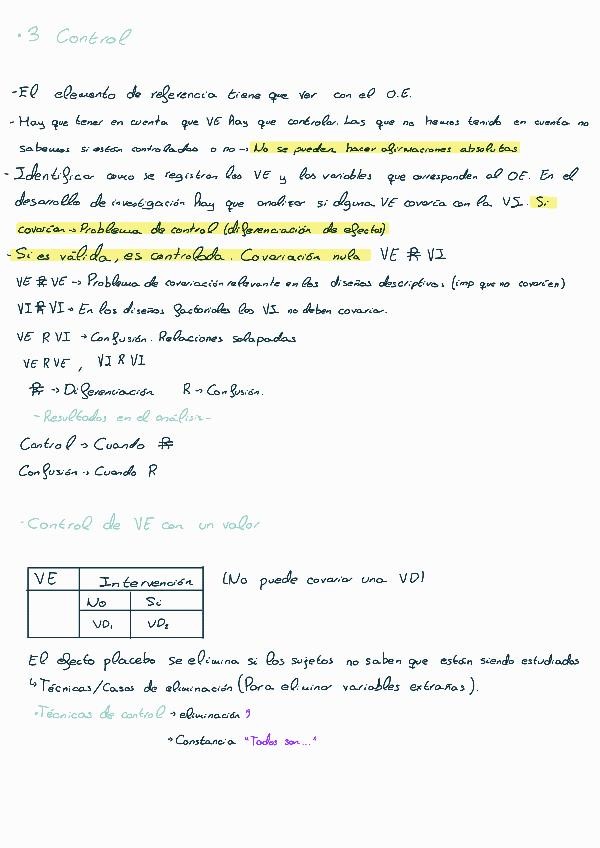 ·3 Control
-El elemento de referencia tiene que ver con el O.E.
-Hay que tener en cuenta que VE hay que controlar. Las que no hemos tenido en cuenta no
sabemos si están controladas o no→ No se pueden hacer afirmaciones absolutas
-Identificar como se registran las VE y las variables que corresponden al OE. En el
desarrollo de investigación hay que analizar si alguna VE covaría con la VI. Si
covarían→Problema de control (diferenciación de efectos)
-Si es válida, es controlada. Covariación nula VE R̶ VI
VE R̶ VE → Problema de covariación relevante en los diseños descriptivos (imp que no covaríen)
VI R̶ VI → En los diseños factoriales las VI no deben covariar.
VE R VI → Confusión. Relaciones solapadas
VE R VE , VI R VI
R̶ → Diferenciación R → Confusión.
-Resultados en el análisis-
Control → Cuando R̶
Confusión → Cuando R
·Control de VE con un valor
VE Intervención (No puede covariar una VD)
No Si
VD₁ VD₂
El efecto placebo se elimina si los sujetos no saben que están siendo estudiados
↳Técnicas/Casos de eliminación (Para eliminar variables extrañas).
·Técnicas de control → eliminación
→Constancia "Todos son..."